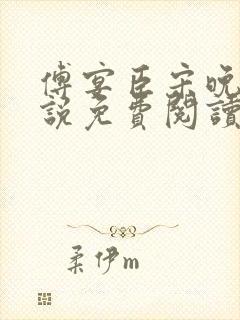 傅宴臣宋晚
說免費閱讀
柔伊m